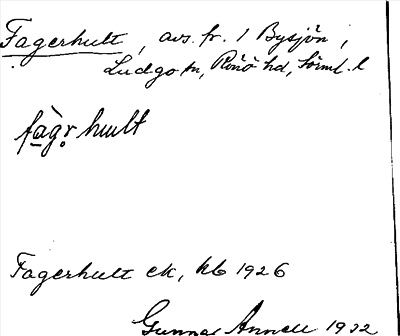 Fagerhult, avs. fr. 1 Bysjön,
Ludgo sn, Rönö hd, Sörml. l
fa̠gr̥hult
Fagerhult ek, kb 1926
Gunnar Annell 1932